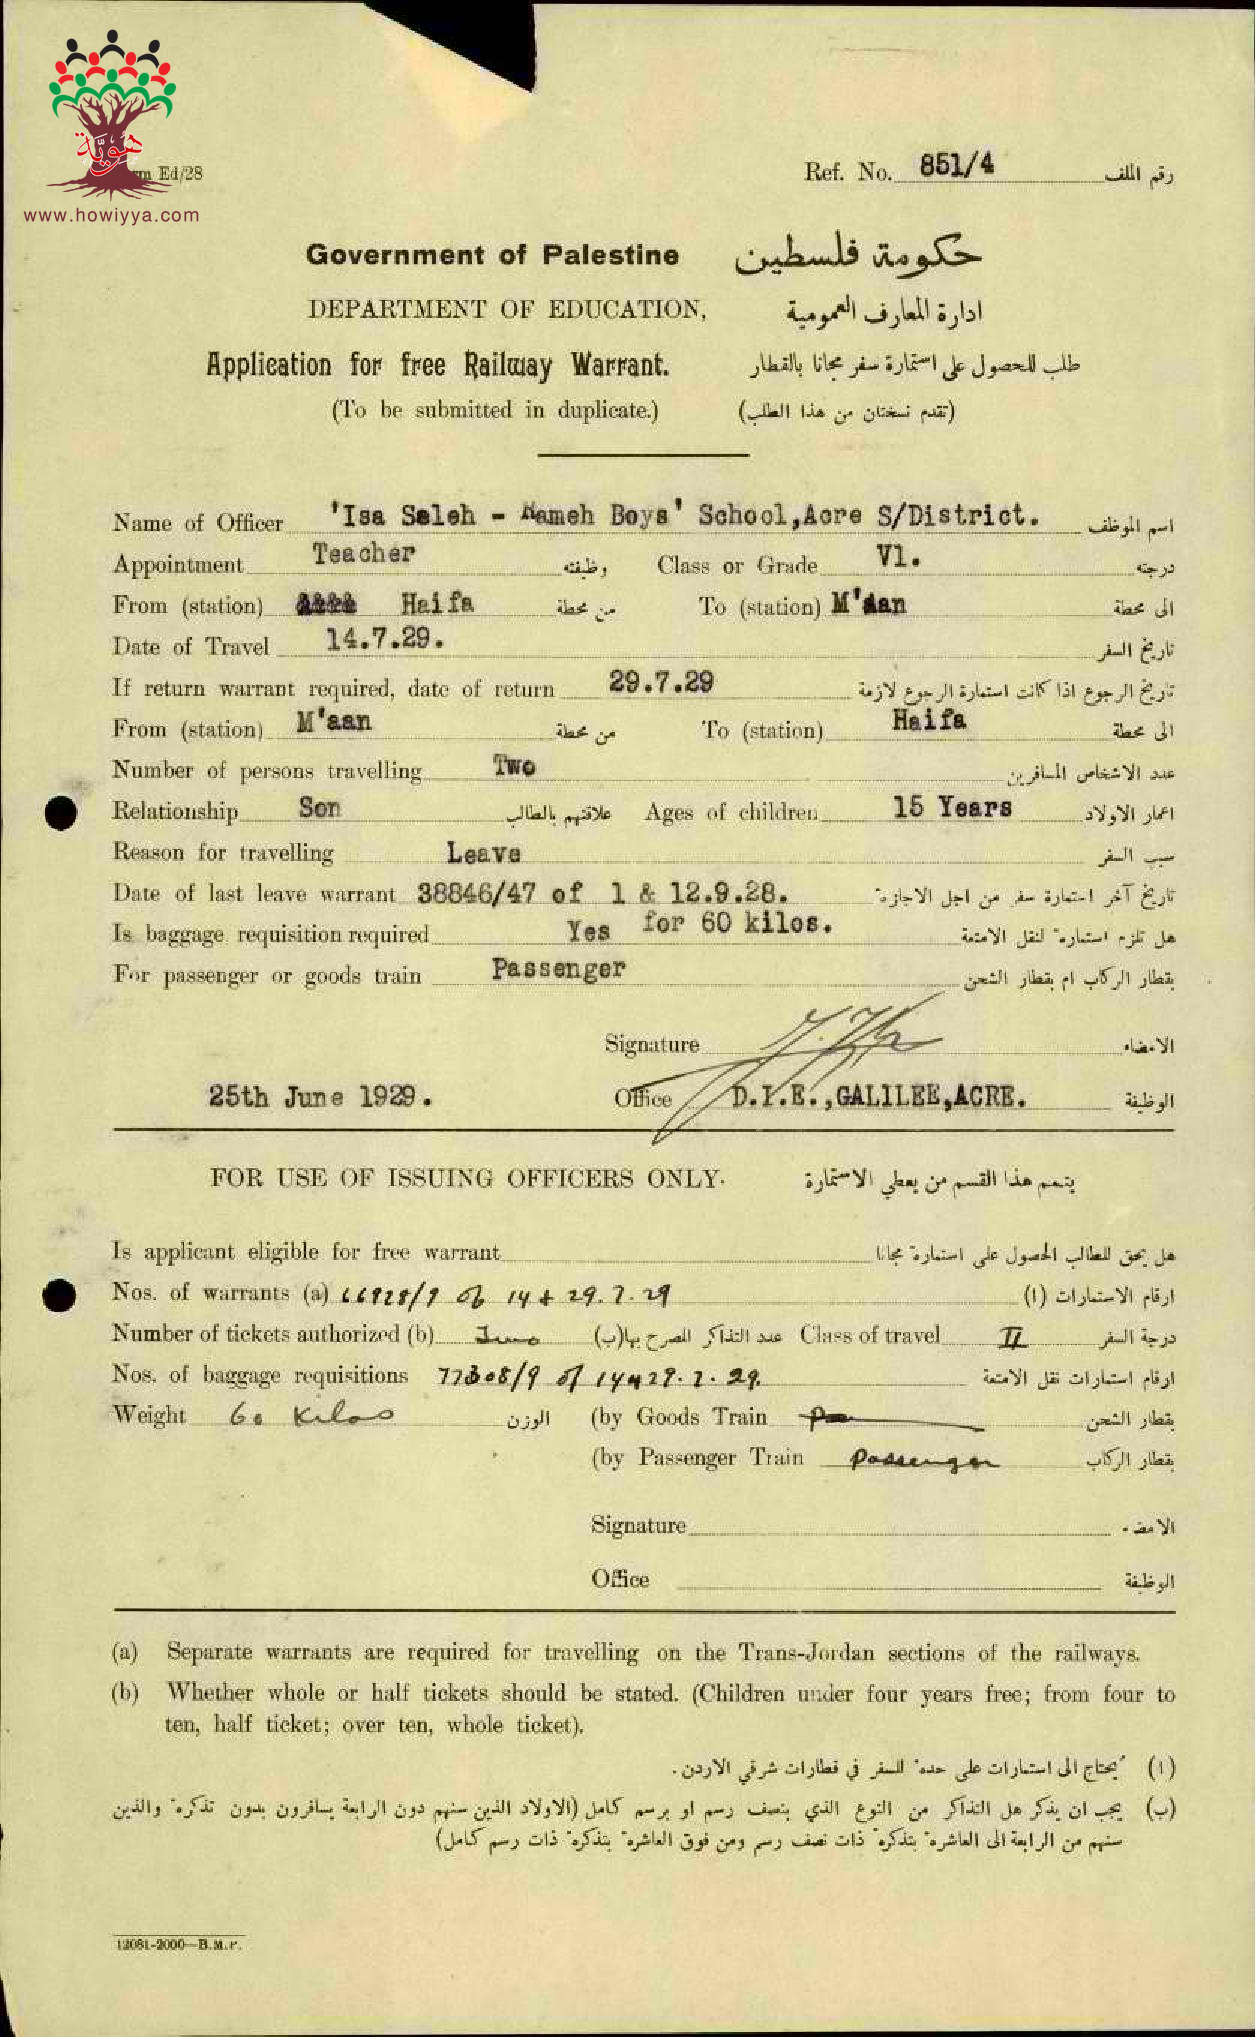 هويّة
www.howiyya.com
Ed/28
Ref. No. 851/4 رقم الملف
Government of Palestine حكومة فلسطين
DEPARTMENT OF EDUCATION, ادارة المعارف العمومية
Application for free Railway Warrant. طلب للحصول على استمارة سفر مجانا بالقطار
(To be submitted in duplicate.) (تقدم نسختان من هذا الطلب)
Name of Officer 'Isa Saleh - Rameh Boys' School,Acre S/District. اسم الموظف
Appointment Teacher وظيفته Class or Grade V1. درجته
From (station) Haifa من محطة To (station) M'aan الى محطة
Date of Travel 14.7.29. تاريخ السفر
If return warrant required, date of return 29.7.29 تاريخ الرجوع اذا كانت استمارة الرجوع لازمة
From (station) M'aan من محطة To (station) Haifa الى محطة
Number of persons travelling Two عدد الاشخاص المسافرين
Relationship Son علاقتهم بالطالب Ages of children 15 Years اعمار الاولاد
Reason for travelling Leave سبب السفر
Date of last leave warrant 38846/47 of 1 & 12.9.28. تاريخ آخر استمارة سفر من اجل الاجازة
Is baggage requisition required Yes for 60 kilos. هل تلزم استمارة لنقل الامتعة
For passenger or goods train Passenger بقطار الركاب ام بقطار الشحن
Signature الامضاء
25th June 1929. Office D.I.E.,GALILEE,ACRE. الوظيفة
FOR USE OF ISSUING OFFICERS ONLY. يتمم هذا القسم من يعطي الاستمارة
Is applicant eligible for free warrant هل يحق للطالب الحصول على استمارة مجانا
Nos. of warrants (a) 66928/9 of 14 & 29.7.29 ارقام الاستمارات (ا)
Number of tickets authorized (b) عدد التذاكر المصرح بها (ب) Class of travel II درجة السفر
Nos. of baggage requisitions 77308/9 of 14 & 29.7.29. ارقام استمارات نقل الامتعة
Weight 60 Kilos الوزن (by Goods Train بقطار الشحن
(by Passenger Train Passenger بقطار الركاب
Signature الامضاء
Office الوظيفة
(a) Separate warrants are required for travelling on the Trans-Jordan sections of the railways.
(b) Whether whole or half tickets should be stated. (Children under four years free; from four to
ten, half ticket; over ten, whole ticket).
(ا) يحتاج الى استمارات على حدة للسفر في قطارات شرقي الاردن.
(ب) يجب ان يذكر هل التذاكر من النوع الذي بنصف رسم او برسم كامل (الاولاد الذين سنهم دون الرابعة يسافرون بدون تذكرة والذين
سنهم من الرابعة الى العاشرة بتذكرة ذات نصف رسم ومن فوق العاشرة بتذكرة ذات رسم كامل)
12081-2000-B.M.P.